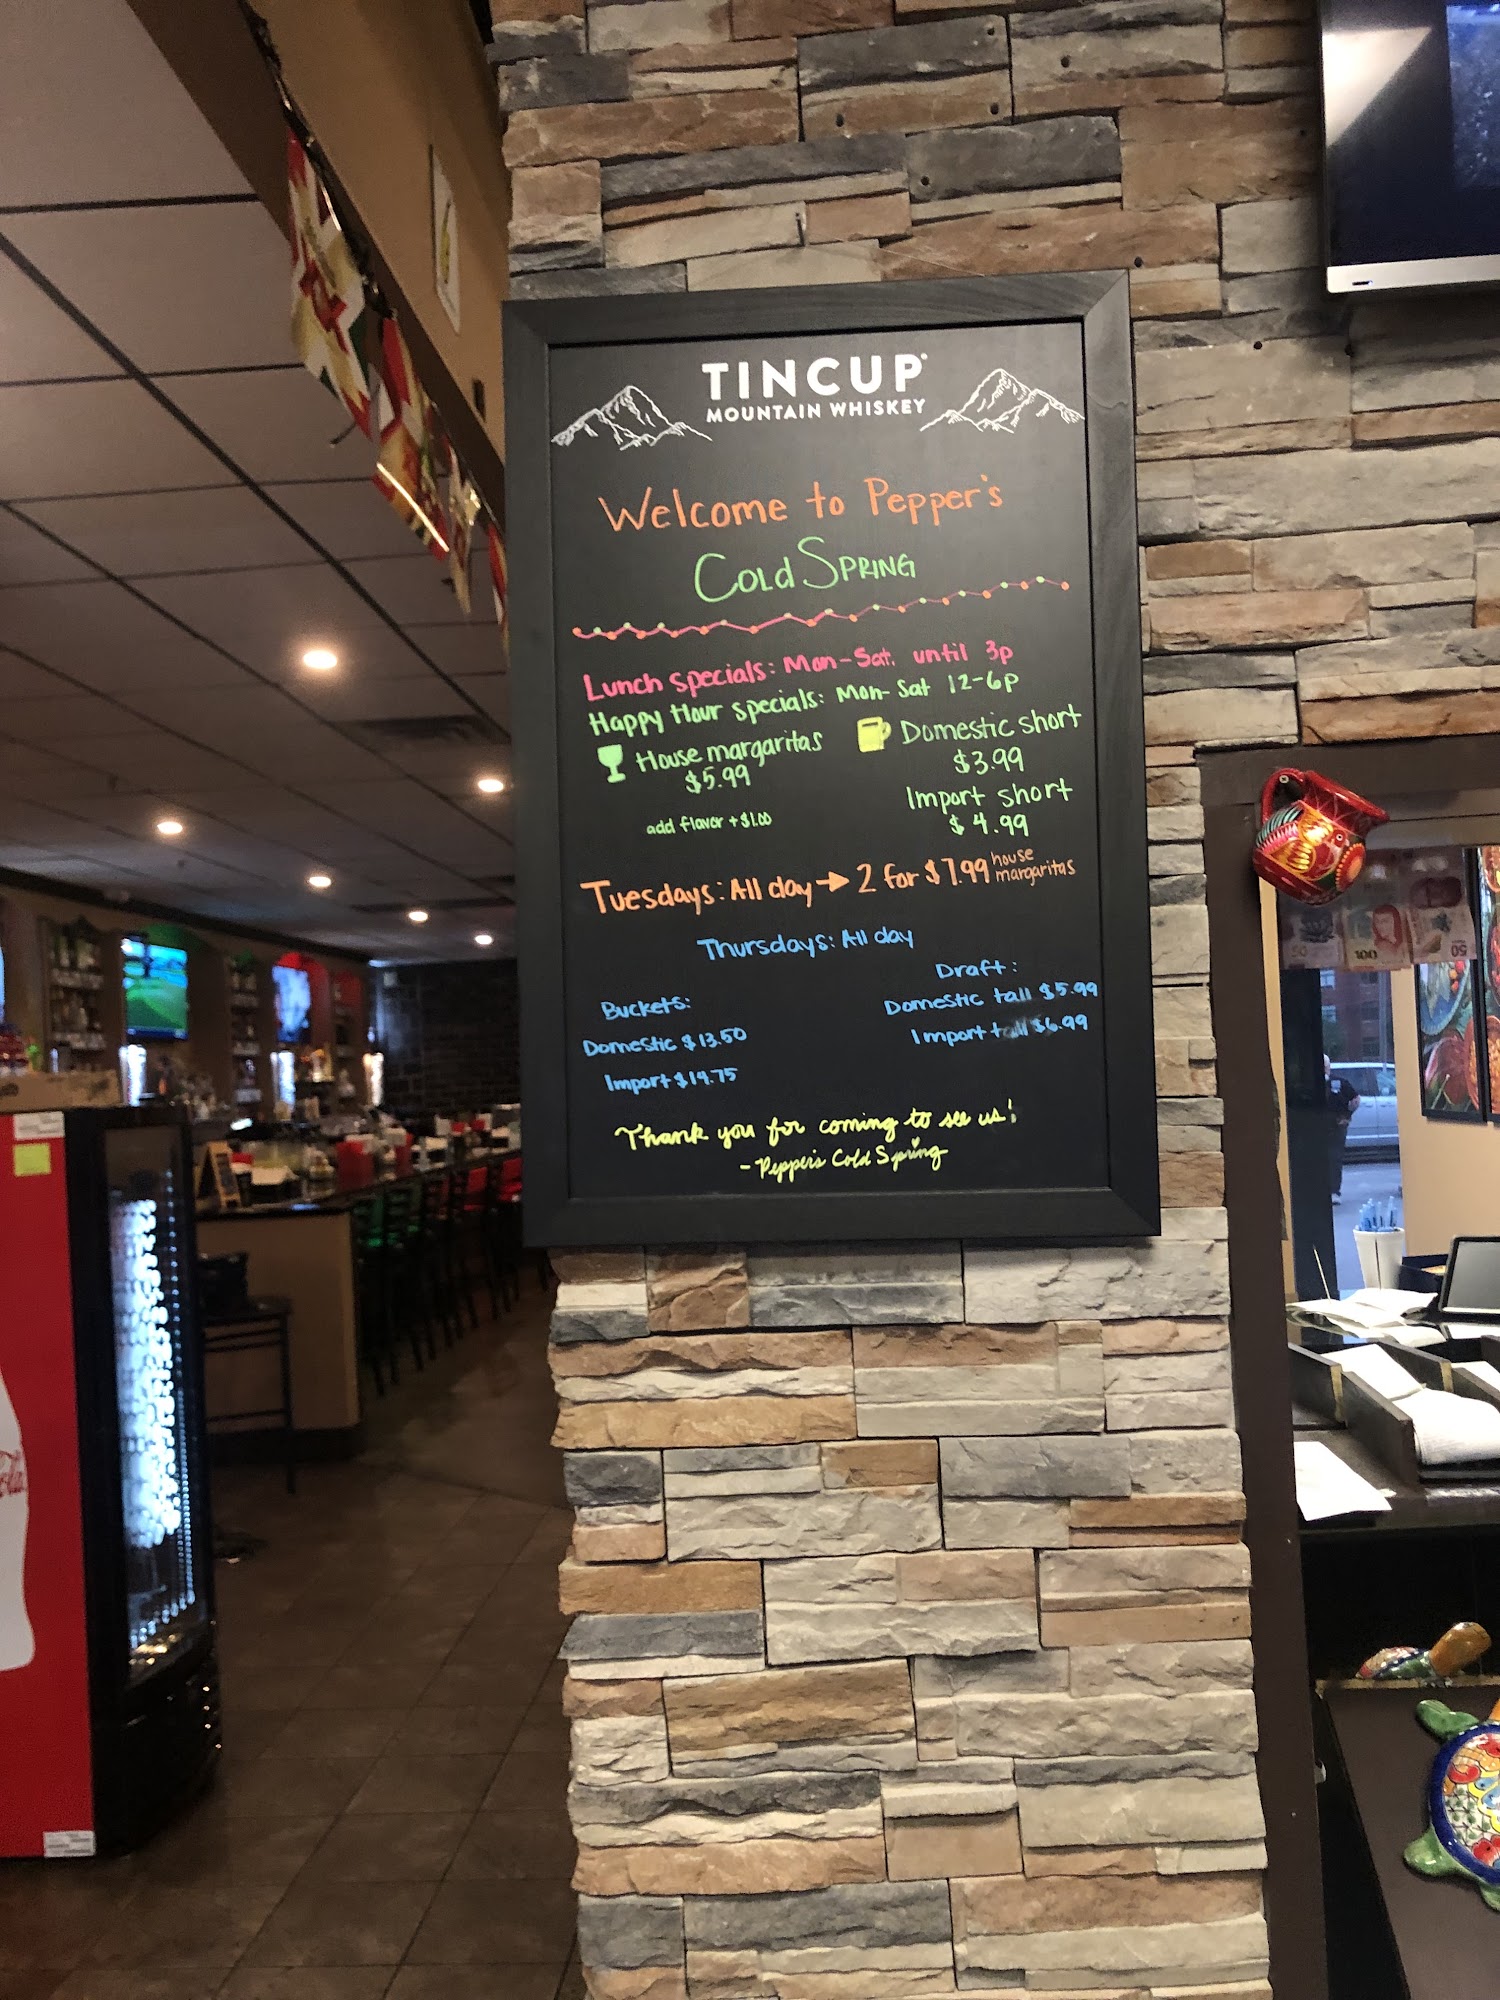 TINCUP
MOUNTAIN WHISKEY
Welcome to Pepper's
Cold Spring
Lunch specials: Mon-Sat. until 3p
Happy Hour specials: Mon-Sat 12-6p
House margaritas
$5.99
add flavor +$1.00
Domestic short
$3.99
Import short
$4.99
Tuesdays: All day → 2 for $7.99 house margaritas
Thursdays: All day
Buckets:
Domestic $13.50
Import $14.75
Draft:
Domestic tall $5.99
Import tall $6.99
Thank you for coming to see us!
- Pepper's Cold Spring
50
100
50